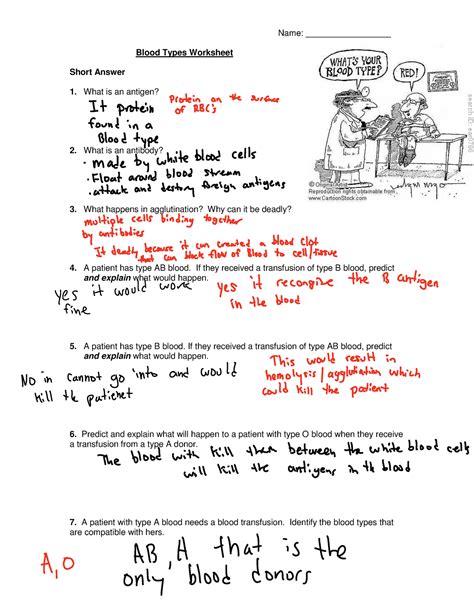 Name: ____________________
Blood Types Worksheet
Short Answer
WHAT'S YOUR BLOOD TYPE?
RED!
1. What is an antigen?
It protein
found in a
Blood type
Protein on the surface
of RBC's
2. What is an antibody?
• made by white blood cells
• Float around blood stream
• attack and destroy foreign antigens
© Original Artist
Reproduction rights obtainable from
www.CartoonStock.com
3. What happens in agglutination? Why can it be deadly?
multiple cells binding together
by antibodies
It deadly because it can created a blood clot
that can block flow of blood to cell/tissue
4. A patient has type AB blood. If they received a transfusion of type B blood, predict
and explain what would happen.
yes it would work
fine
yes it recongize the B antigen
in the blood
5. A patient has type B blood. If they received a transfusion of type AB blood, predict
and explain what would happen.
No in cannot go into and would
kill the patient
This would result in
hemolysis/agglutination which
could kill the patient
6. Predict and explain what will happen to a patient with type O blood when they receive
a transfusion from a type A donor.
The blood with kill them between the white blood cells
will kill the antigens in the blood
7. A patient with type A blood needs a blood transfusion. Identify the blood types that
are compatible with hers.
A,O
AB, A that is the
only blood donors